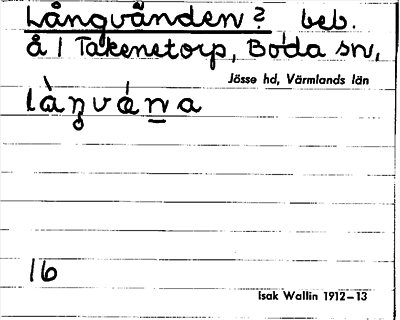 Långvånden? beb.
å 1 Takenetorp, Boda sn,
Jösse hd, Värmlands län
làŋvána
16
Isak Wallin 1912–13